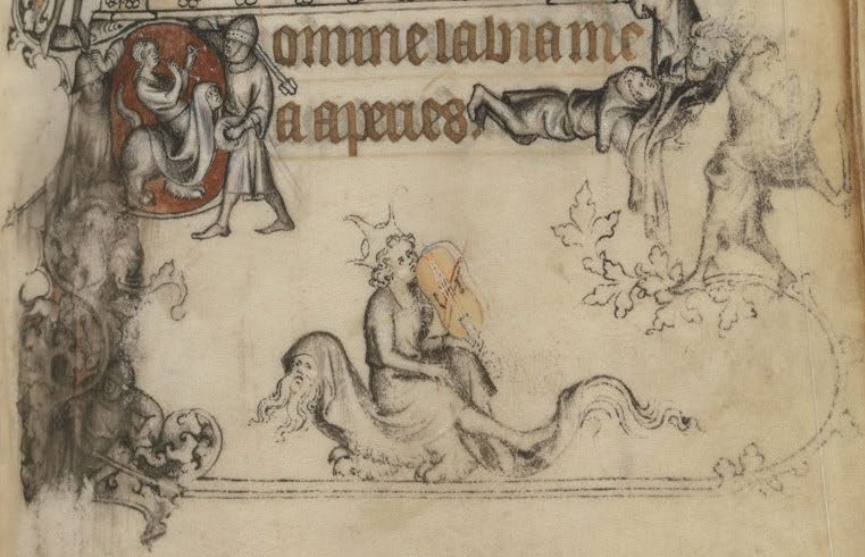 omine labia me
a aperies